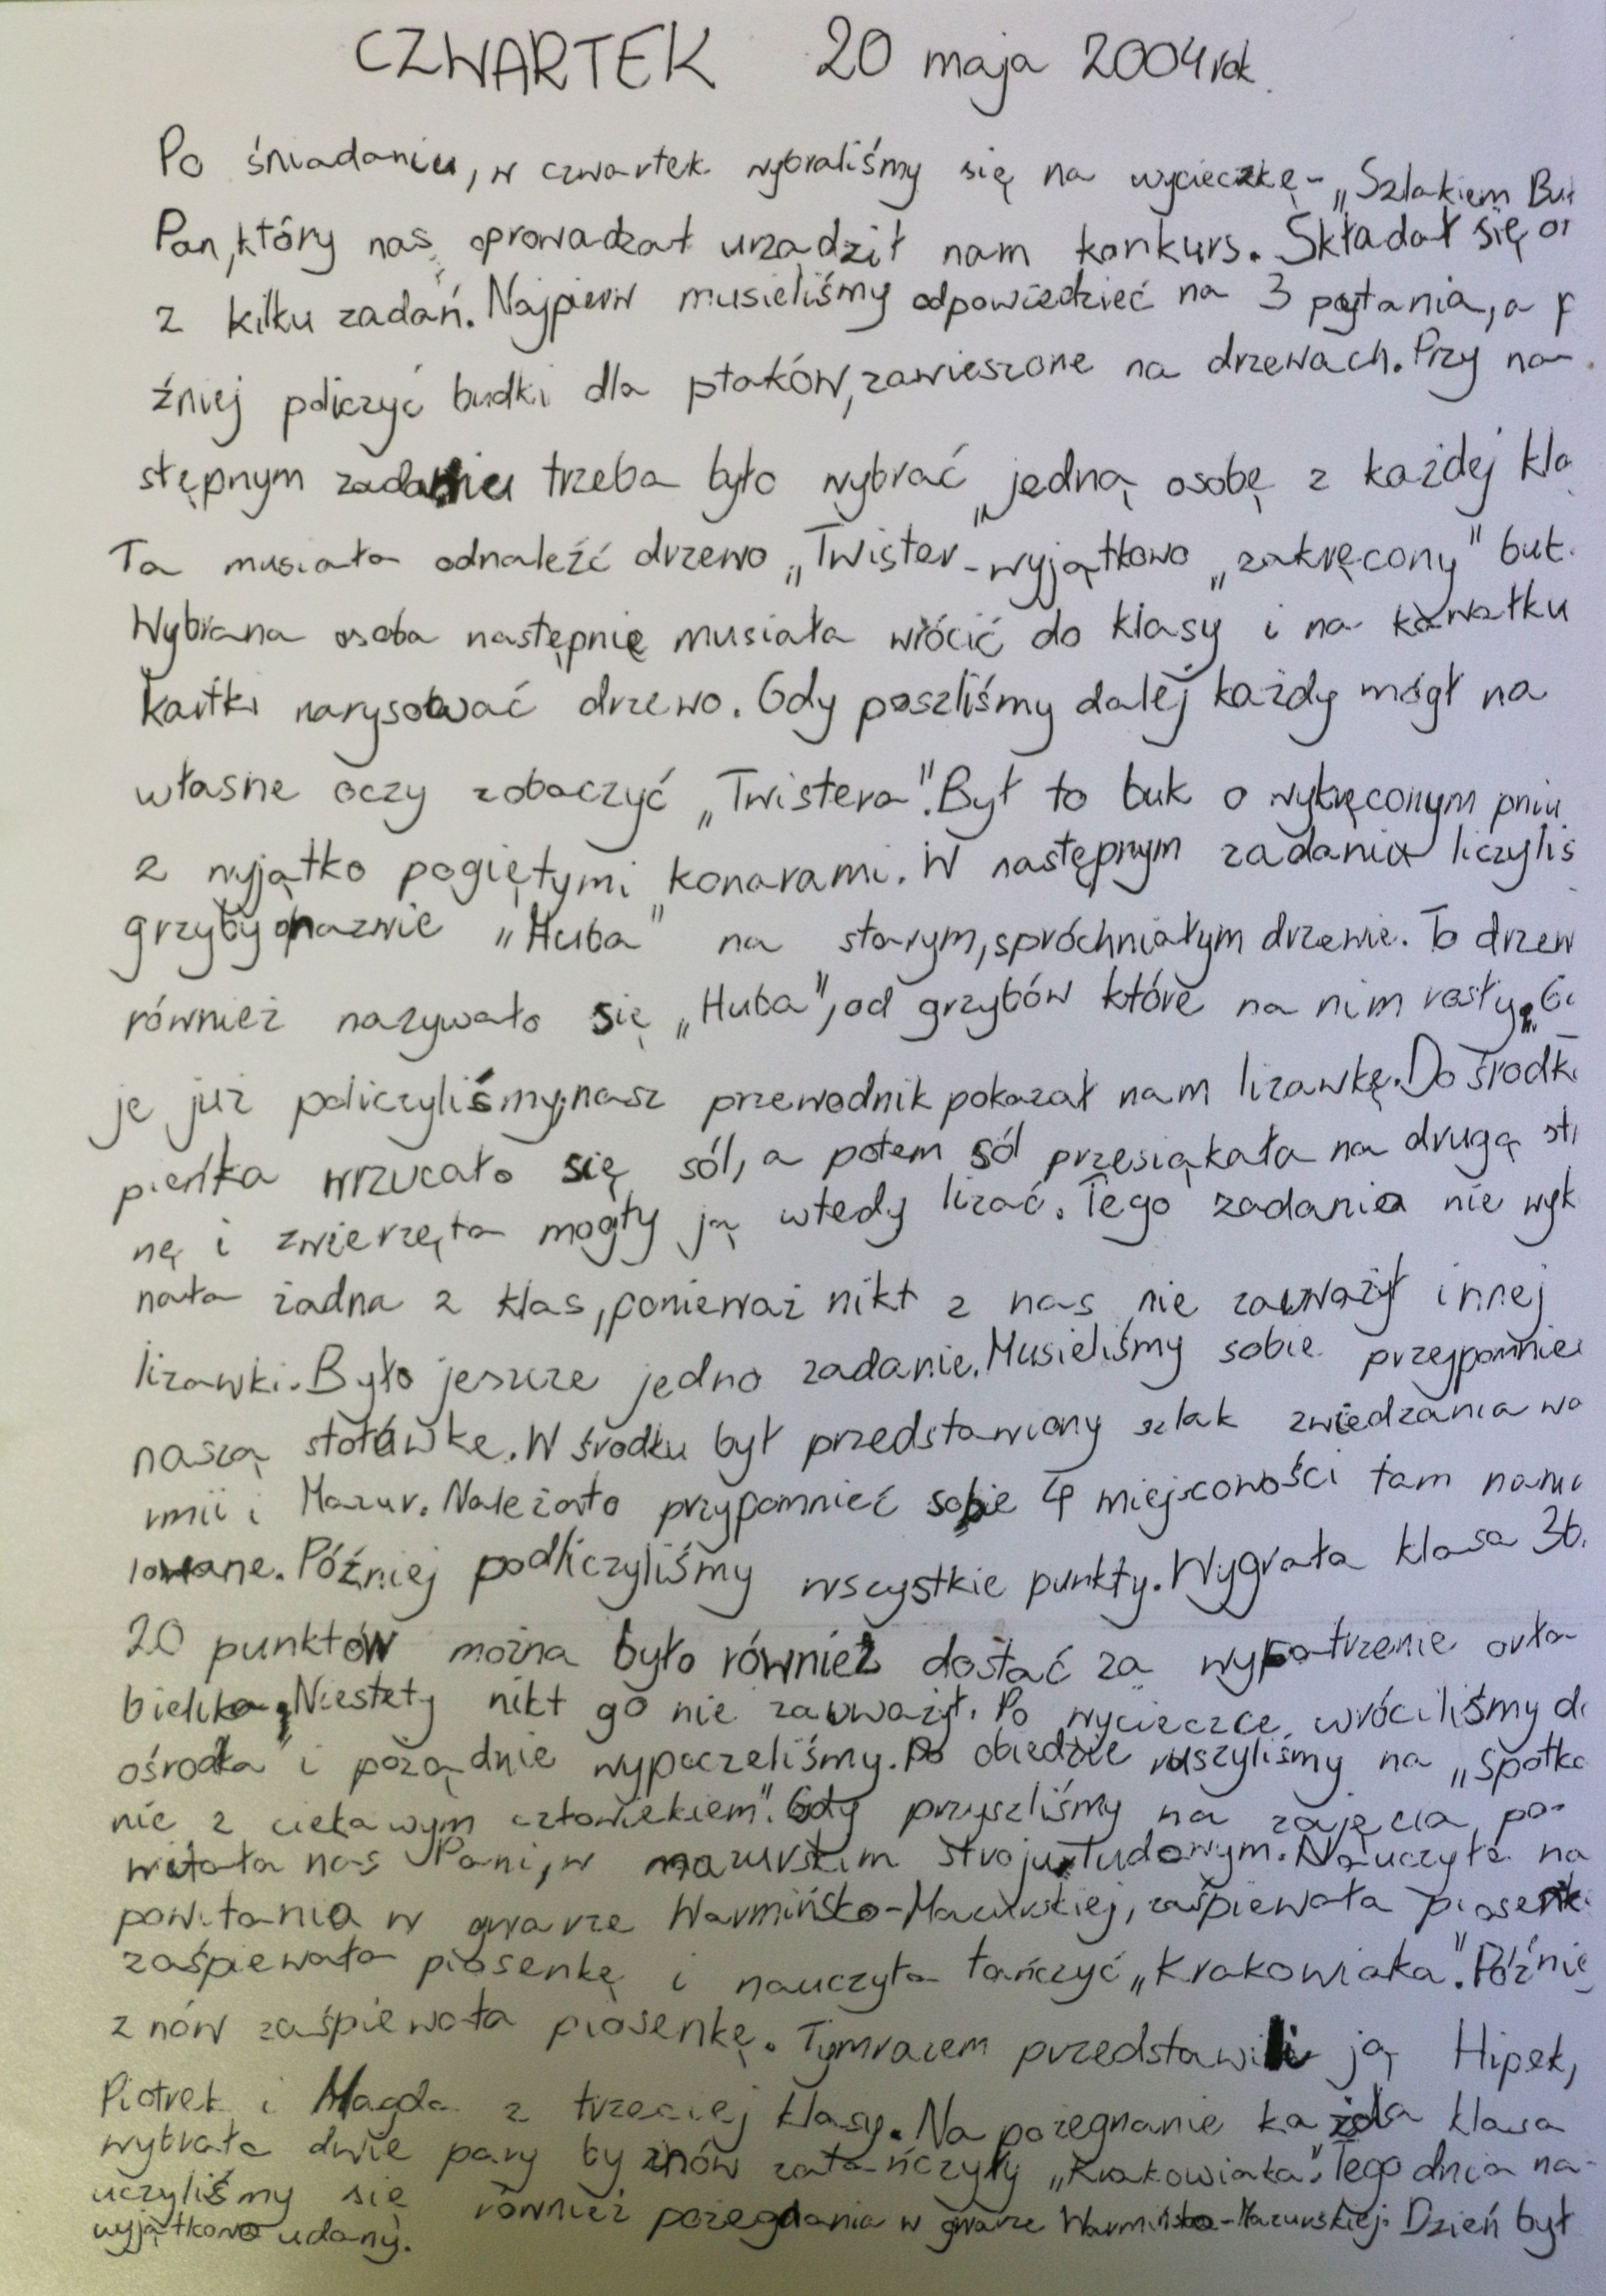 CZWARTEK 20 maja 2004 rok.
Po śniadaniu, w czwartek wybraliśmy się na wycieczkę - „Szlakiem
Pan, który nas oprowadzał urządził nam konkurs. Składał się on
z kilku zadań. Najpierw musieliśmy odpowiedzieć na 3 pytania, a p
źniej policzyć budki dla ptaków, zawieszone na drzewach. Przy na-
stępnym zadaniu trzeba było wybrać jedną osobę z każdej kla
Ta musiała odnaleźć drzewo „Twister - wyjątkowo „zakręcony" buk.
Wybrana osoba następnie musiała wrócić do klasy i na kawałku
kartki narysować drzewo. Gdy poszliśmy dalej każdy mógł na
własne oczy zobaczyć „Twistera". Był to buk o wykręconym pniu
z wyjątko pogiętymi konarami. W następnym zadaniu liczyliś
grzyby o nazwie „Huba" na starym, spróchniałym drzewie. To drzew
również nazywało się „Huba", od grzybów które na nim rosły. G
je już policzyliśmy, nasz przewodnik pokazał nam lizawkę. Do środk
pieńka wrzucało się sól, a potem sól przesiąkała na drugą st
nę i zwierzęta mogły ją wtedy lizać. Tego zadania nie wyk
nała żadna z klas, ponieważ nikt z nas nie zauważył innej
lizawki. Było jeszcze jedno zadanie. Musieliśmy sobie przypomnie
naszą stołówkę. W środku był przedstawiony szlak zwiedzania wa
rmii i Mazur. Należało przypomnieć sobie 4 miejscowości tam nama
lowane. Później podliczyliśmy wszystkie punkty. Wygrała klasa 3b.
20 punktów można było również dostać za wypatrzenie orła
bielika. Niestety nikt go nie zauważył. Po wycieczce wróciliśmy d
ośrodka i pożądnie wypoczeliśmy. Po obiedzie ruszyliśmy na „spotka
nie z ciekawym człowiekiem". Gdy przyszliśmy na zajęcia po-
witała nas Pani, w mazurskim stroju ludowym. Nauczyła na
powitania w gwarze Warmińsko-Mazurskiej, zaśpiewała piosenk
zaśpiewała piosenkę i nauczyła tańczyć „Krakowiaka". Późnie
znów zaśpiewała piosenkę. Tymrazem przedstawili ją Hipek,
Piotrek i Magda z trzeciej klasy. Na pożegnanie każda klasa
wybrała dwie pary by znów zatańczyły „Krakowiaka". Tego dnia na-
uczyliśmy się również pożegnania w gwarze Warmińsko-Mazurskiej. Dzień był
wyjątkowo udany.